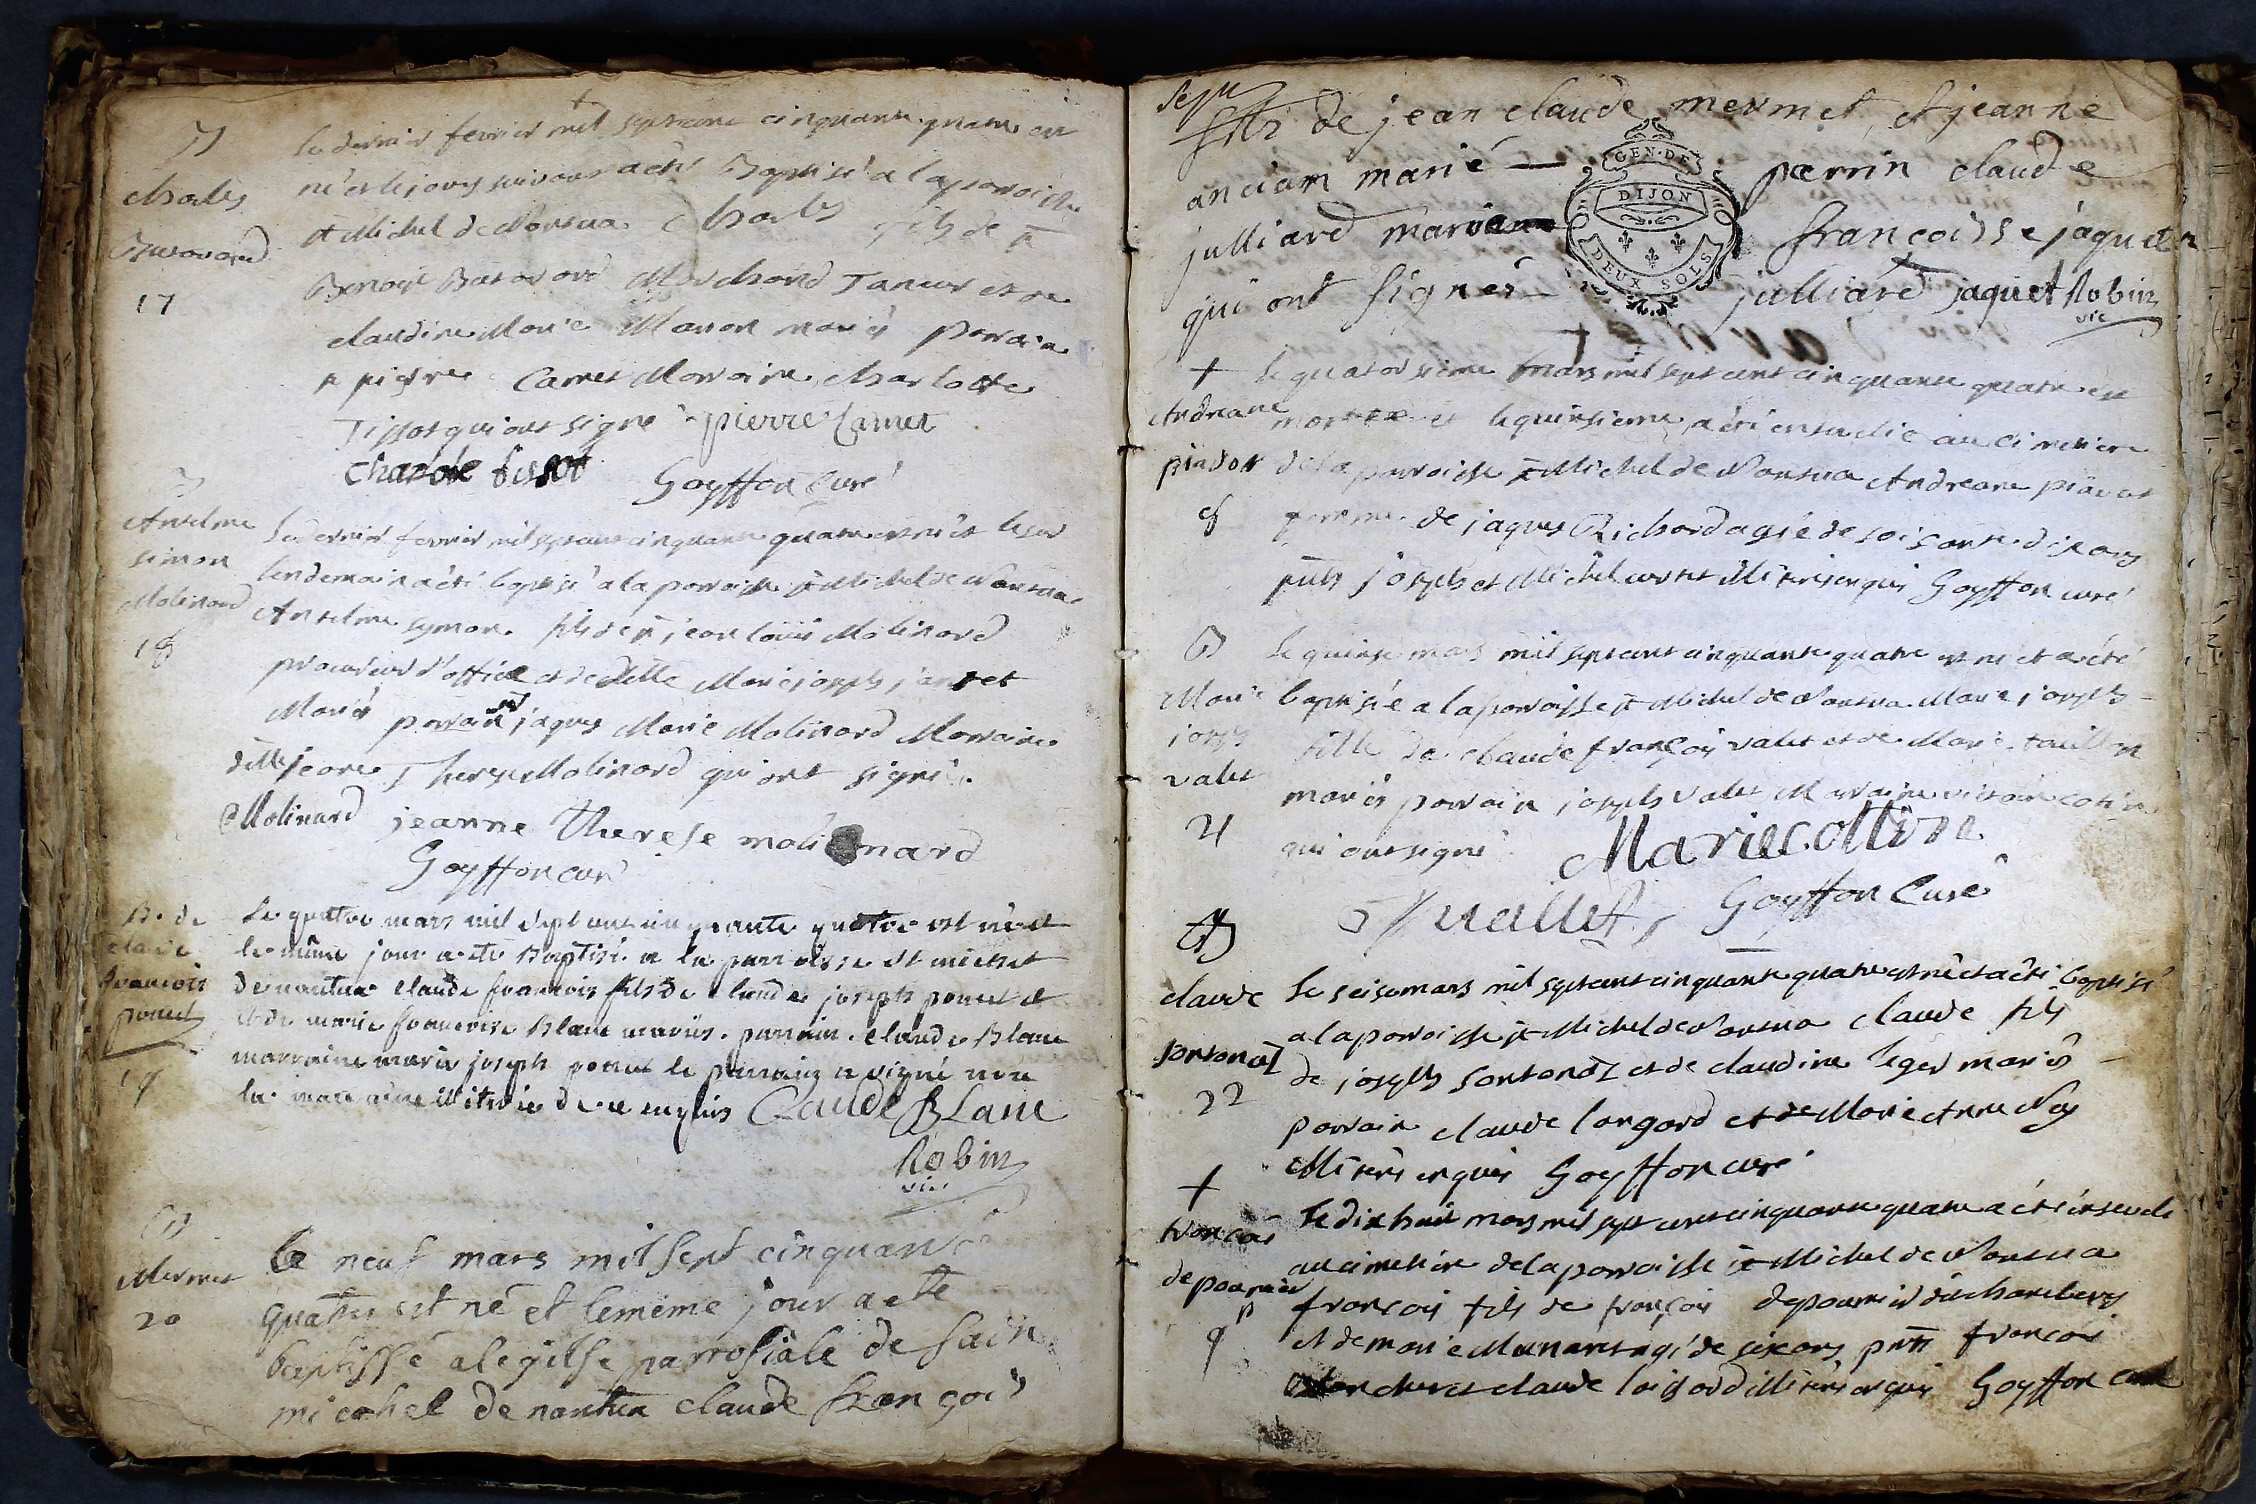 B
charles
Butavand
17
Le dernier fevrier mil septcent cinquante quatre est
né et le jour suivant a eté Baptisé a la paroisse
st Michel de Nantua charles fils de sr
Benoit Butavand Marchand Taneur et de
claudine Marie Maron mariés parrain
sr pierre Carnet Marraine charlotte
Tissot qui ont signé pierre Carnet
charlote tissot Goyffon Curé
B
Anselme
simon
Molinard
18
Le dernier fevrier mil septcent cinquante quatre est né et le
lendemain a eté baptisé a la paroisse st Michel de Nantua
Anselme symon fils de sr jean louis Molinard
procureur d'office et de delle Marie joseph jantet
Mariés parrain sr jaques Marie Molinard Marraine
delle jeanne Therese Molinard qui ont signé
Molinard jeanne Therese molinard
Goyffon curé
B. de
claude
francois
poncet
19
Le quatre mars mil sept cent cinquante quatre est né et
le même jour a eté Baptisé a la parroisse st michel
de nantua claude francois fils de claude joseph poncet
et de marie francoise Blanc mariés. parrain. claude Blanc
marraine marie joseph poncet le parrain a signé non
la marraine illiterée de ce enquis Claude BLanc
Robin
vic
B
Mermet
20
le neuf mars mil sept cinquante
quatre est né et lemême jour a eté
baptissé alegilse parrosiale de sain
micahel de nantua claude françois
fils de jean claude mermet et jeanne
ancian marié — perrin claude
julliard marianne françoisse jaquet
qui ont signés julliard jaquet Robin
vic
GEN. DE
DIJON
DEUX SOLS
+
Andreane
piadot
8
le quatorsieme mars mil sept cent cinquante quatre est
morte et le quinsieme a été ensevelie au cimetiere
de la parroisse st Michel de Nantua Andreane
femme de jaques Richard agée de soisante dix ans
pnts joseph et Michel illiterés enquis Goyffon curé
B
Marie
joseph
valet
21
le quinse mars mil septcent cinquante quatre est née et a eté
baptisée a la parroisse st Michel de Nantua Marie joseph
fille de claude françois valet et de Marie
mariés parrain joseph valet Marraine
qui ont signé Marie cottine
Goyffon Curé
B
claude
sontonaz
22
Le seise mars mil septcent cinquante quatre est né et a eté baptisé
a la parroisse st Michel de Nantua claude fils
de joseph sontonaz et de claudine leger mariés
parrain claude longard et de Marie Anne Ney
illiterés enquis Goyffon curé
+
françois
depoumier
9
Le dix huit mars mil sept cent cinquante quatre a eté enseveli
au cimetiere de la parroisse st Michel de Nantua
françois fils de françois depoumier de chambery
et de marie agé de six ans pnts françois
et claude loissard illiterés enquis Goyffon curé